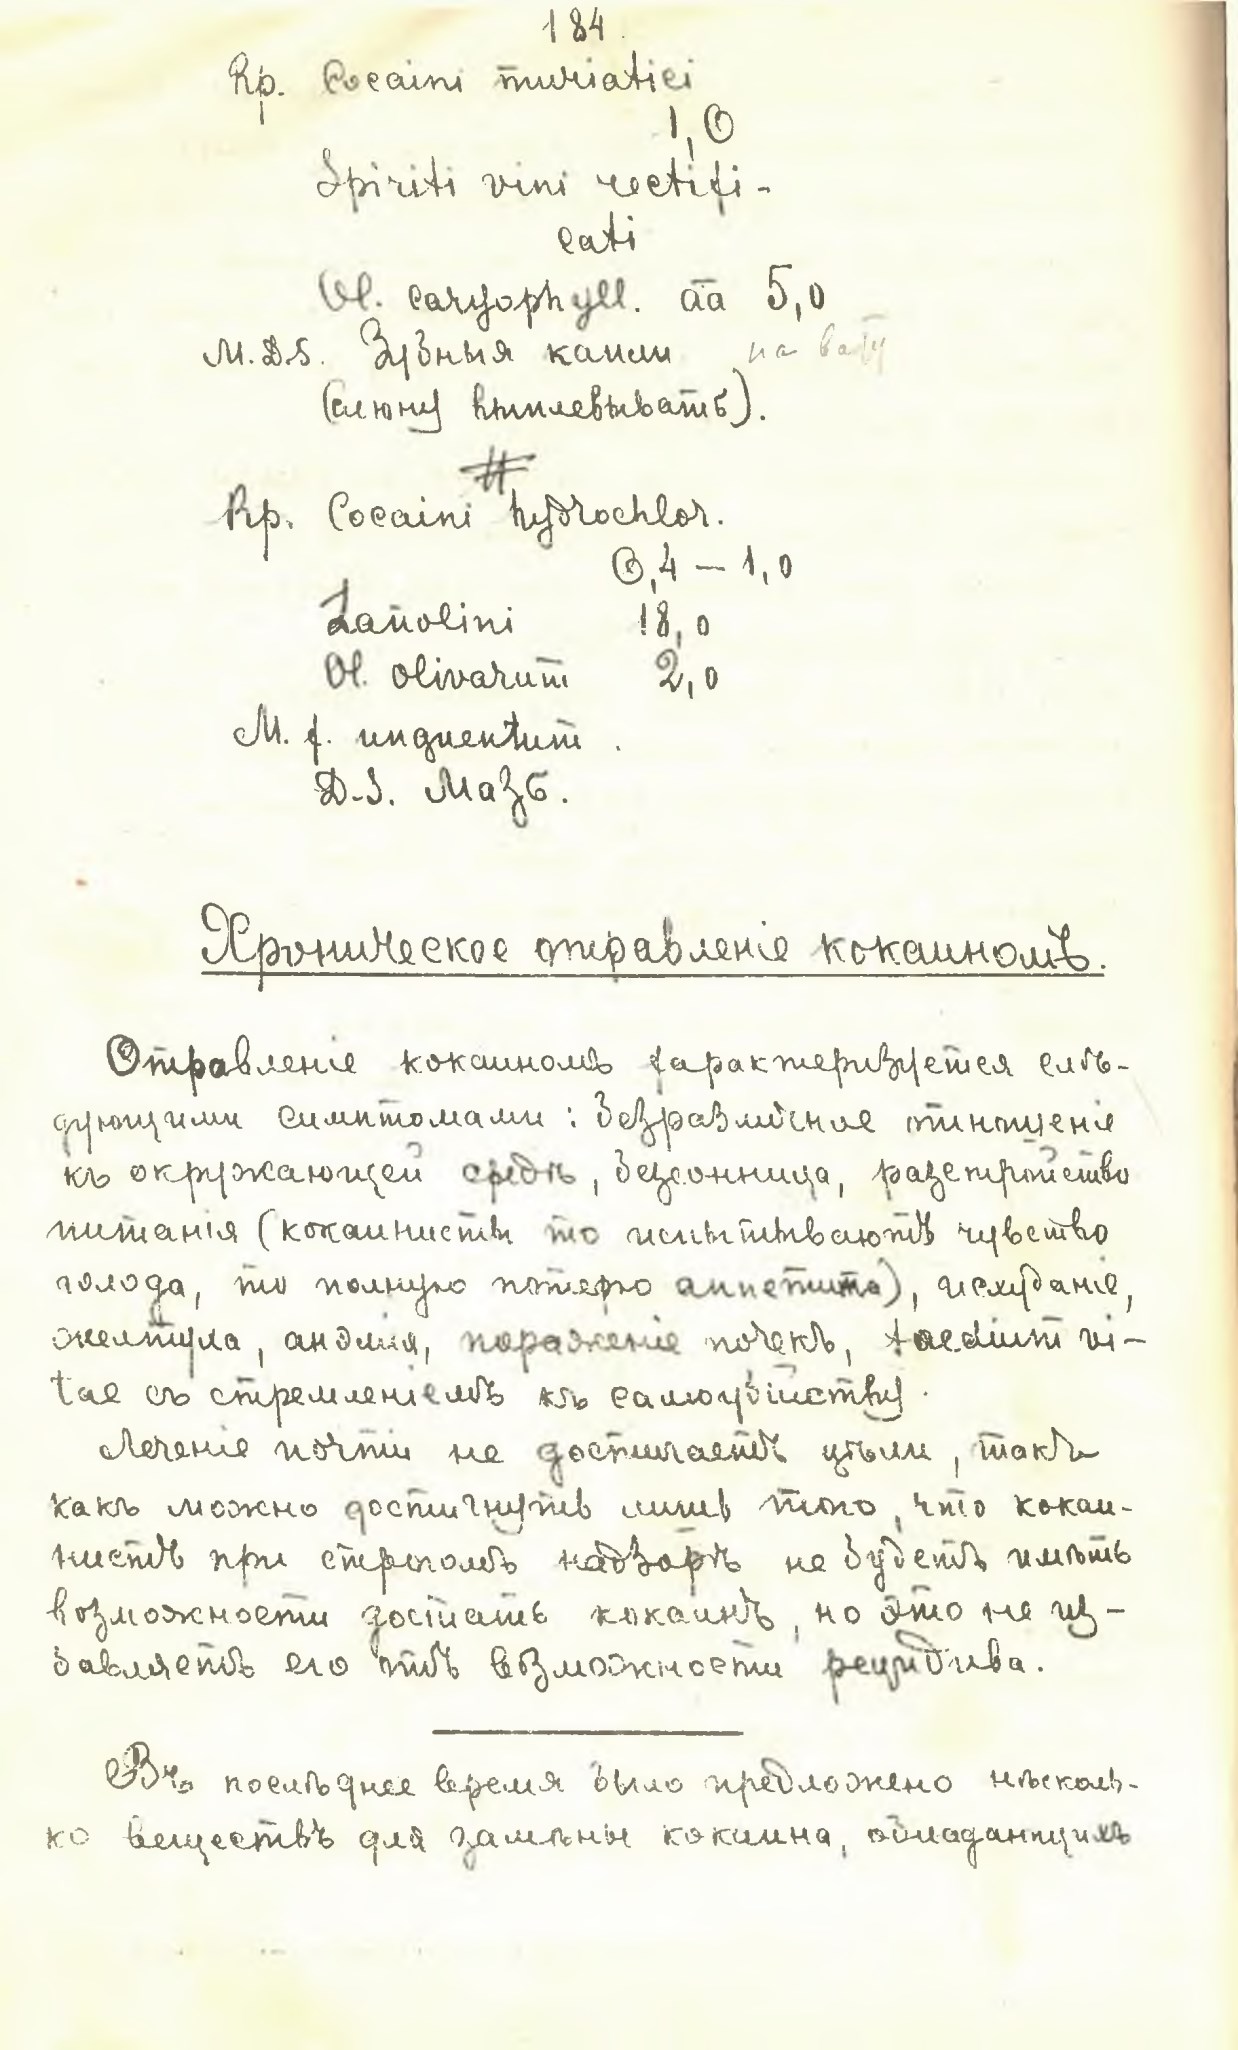 184.
Rp. Cocaini muriatici
1,0
Spiriti vini rectifi-
cati
Ol. caryophyll. āā 5,0
M.D.S. Зубныя капли на вату
(слюну выплевывать).
#
Rp. Cocaini hydrochlor.
0,4 – 1,0
Lanolini 18,0
Ol. olivarum 2,0
M. f. unguentum.
D.S. Мазь.
Хроническое отравленіе кокаиномъ.
Отравленіе кокаиномъ характеризуется слѣ-
дующими симптомами: безразличное отношеніе
къ окружающей средѣ, безсонница, разстройство
питанія (кокаинисты то испытываютъ чувство
голода, то полную потерю аппетита), исхуданіе,
желтуха, анэмія, пораженіе почекъ, taedium vi-
tae съ стремленіемъ къ самоубійству.
Леченіе почти не достигаетъ цѣли, такъ
какъ можно достигнуть лишь того, что кокаи-
нистъ при строгомъ надзорѣ не будетъ имѣть
возможности достать кокаинъ, но это не из-
бавляетъ его отъ возможности рецидива.
Въ послѣднее время было предложено нѣсколь-
ко веществъ для замѣны кокаина, обладающихъ